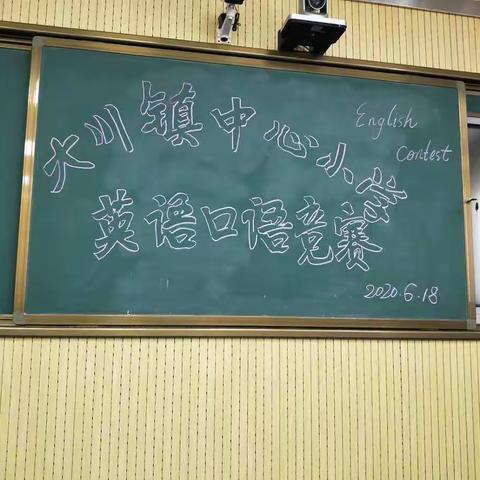 大川镇中心小学
英语口语竞赛
English
Contest
2020.6.18